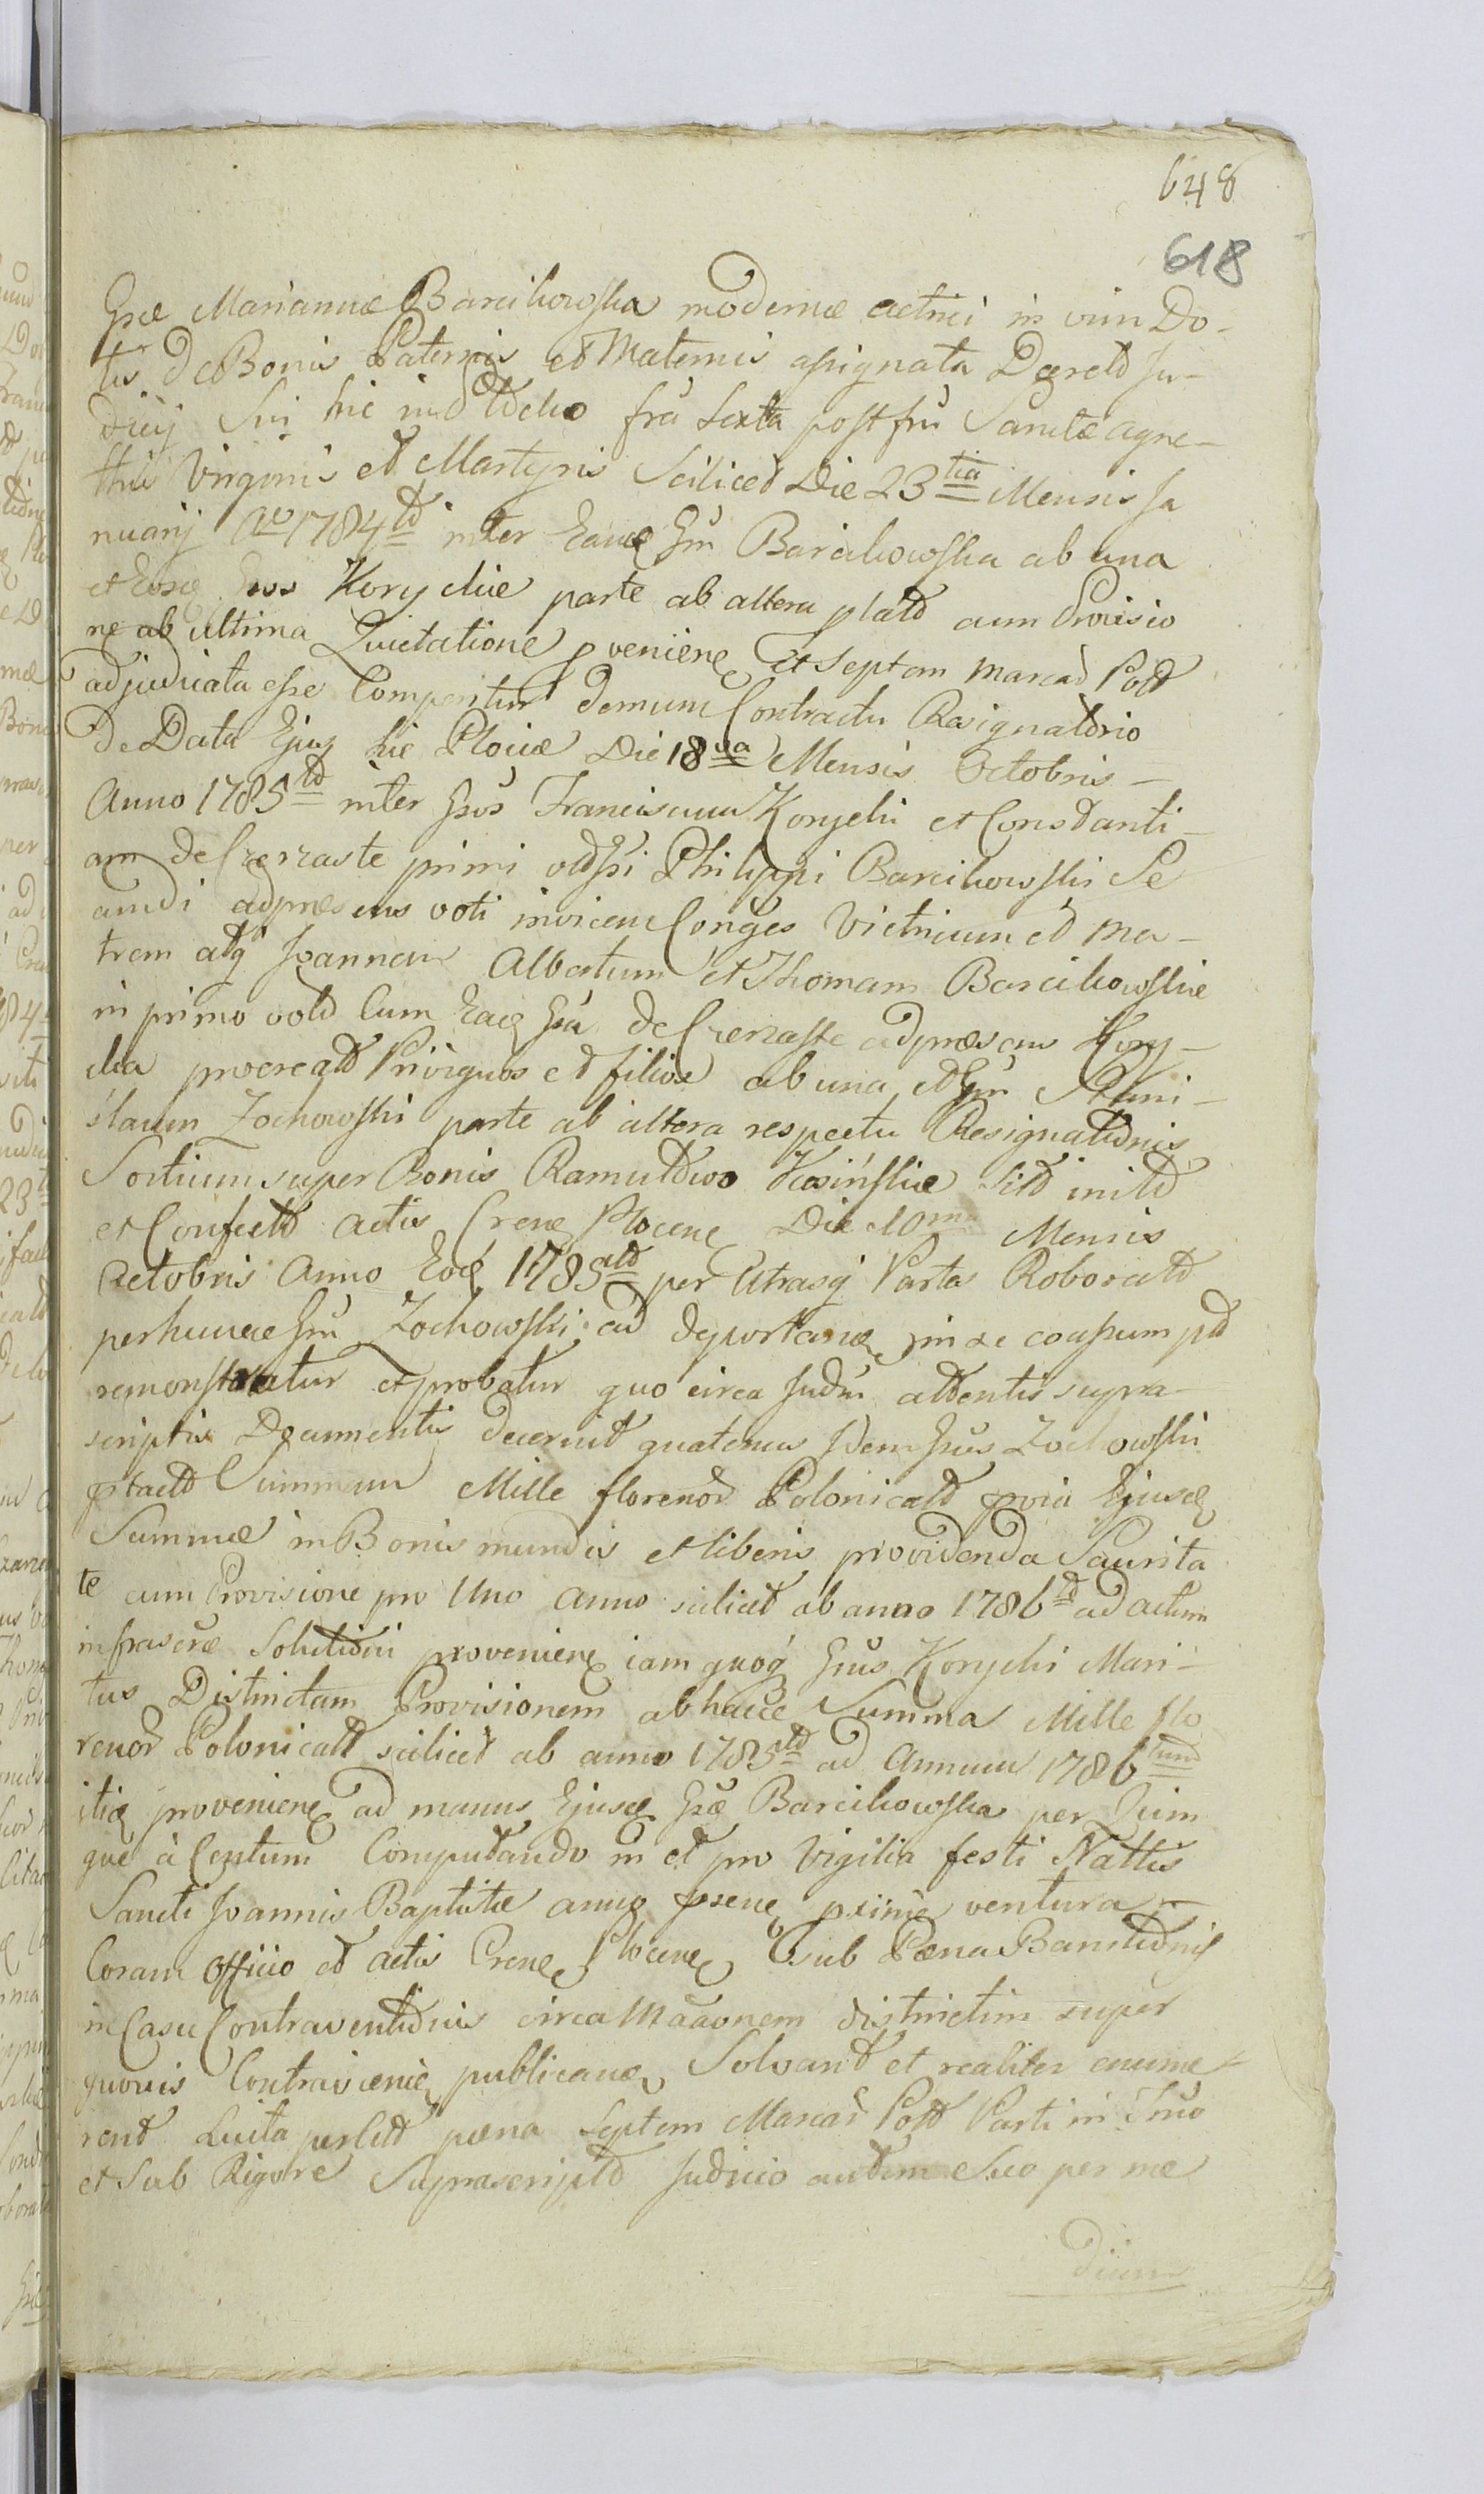 648
618
Gsæ Mariannæ Barcikowska modernæ actrici in vim Do-
tis de Bonis Paternis et Maternis assignata Decreto Ju-
dicij Sui hic fra Sexta post frũ Sanctæ Agne-
this Virginis et Martyris Scilicet Die 23tia Mensis Ja
nuarij Ao 1784to inter Eand Gsm Barcikowska ab una
et Eosq Gsos Koryckie parte ab altera plato cum Provisio
ne ab ultima Quietatione pveniene et Septem marcar Polt
adjudicata esse Comperitur demum Contractu Resignatorio
de Data Ejus hic Plociæ Die 18va Mensis Octobris
Anno 1785to inter Gsos Franciscum Korycki et Constanti-
am de Czerzaste primi olim Gsi Philippi Barcikowski Se
cundi adpræsens voti invicem Conges Victricum et Ma-
trem atq Joannem Albertum et Thomam Barcikowskie
in primo voto Cum Eadq Gsa de Czerzaste adpræsens Kory-
cka procreatos Privignos et filios ab una et Gsm Stani-
slaum Zochowski parte ab altera respectu Resignationis
Sortium super Bonis Ramutowo Kosińskie Sito inito
et Confecto actis Crene Plocene Die 10ma Mensis
Octobris Anno Eod 1785to per Utrasq Partes Roborato
per hunce Gsm Zochowski ad deportand in se consum pd
remonstratur et probatur quo circa Judm attentis supra
scriptis Documentis decernit quatenus Idem Gsus Zochowski
ptacto Summam Mille florenor Polonicalt pvia Ejusd
Summæ in Bonis mundis et liberis providenda Securita
te cum Provisione pro Uno Anno scilicet ab anno 1786to ad actum
infrascræ Solutionis proveniene iam quoq Gsus Korycki Mari-
tus Distinctam Provisionem ab hacce Summa Mille flo
renor Polonicalt scilicet ab anno 1785to ad Annum 1786tum
itid proveniene ad manus Ejusd Gsæ Barcikowska per Quin
que à Centum Computando in et pro Vigilia festi Nattis
Sancti Joannis Baptistæ anno psene pxime ventura
Coram Officio et actis Crene Plocene Sub Pæna Bannitionis
in Casu Contraventionis circa distinctim super
quovis Contravenie publicand Solvant et realiter enume
rent Luita perlitt pæna Septem Marcar Polt Parti in Tmo
et Sub Rigore Suprascripto Judicio autem Suo per me
dium